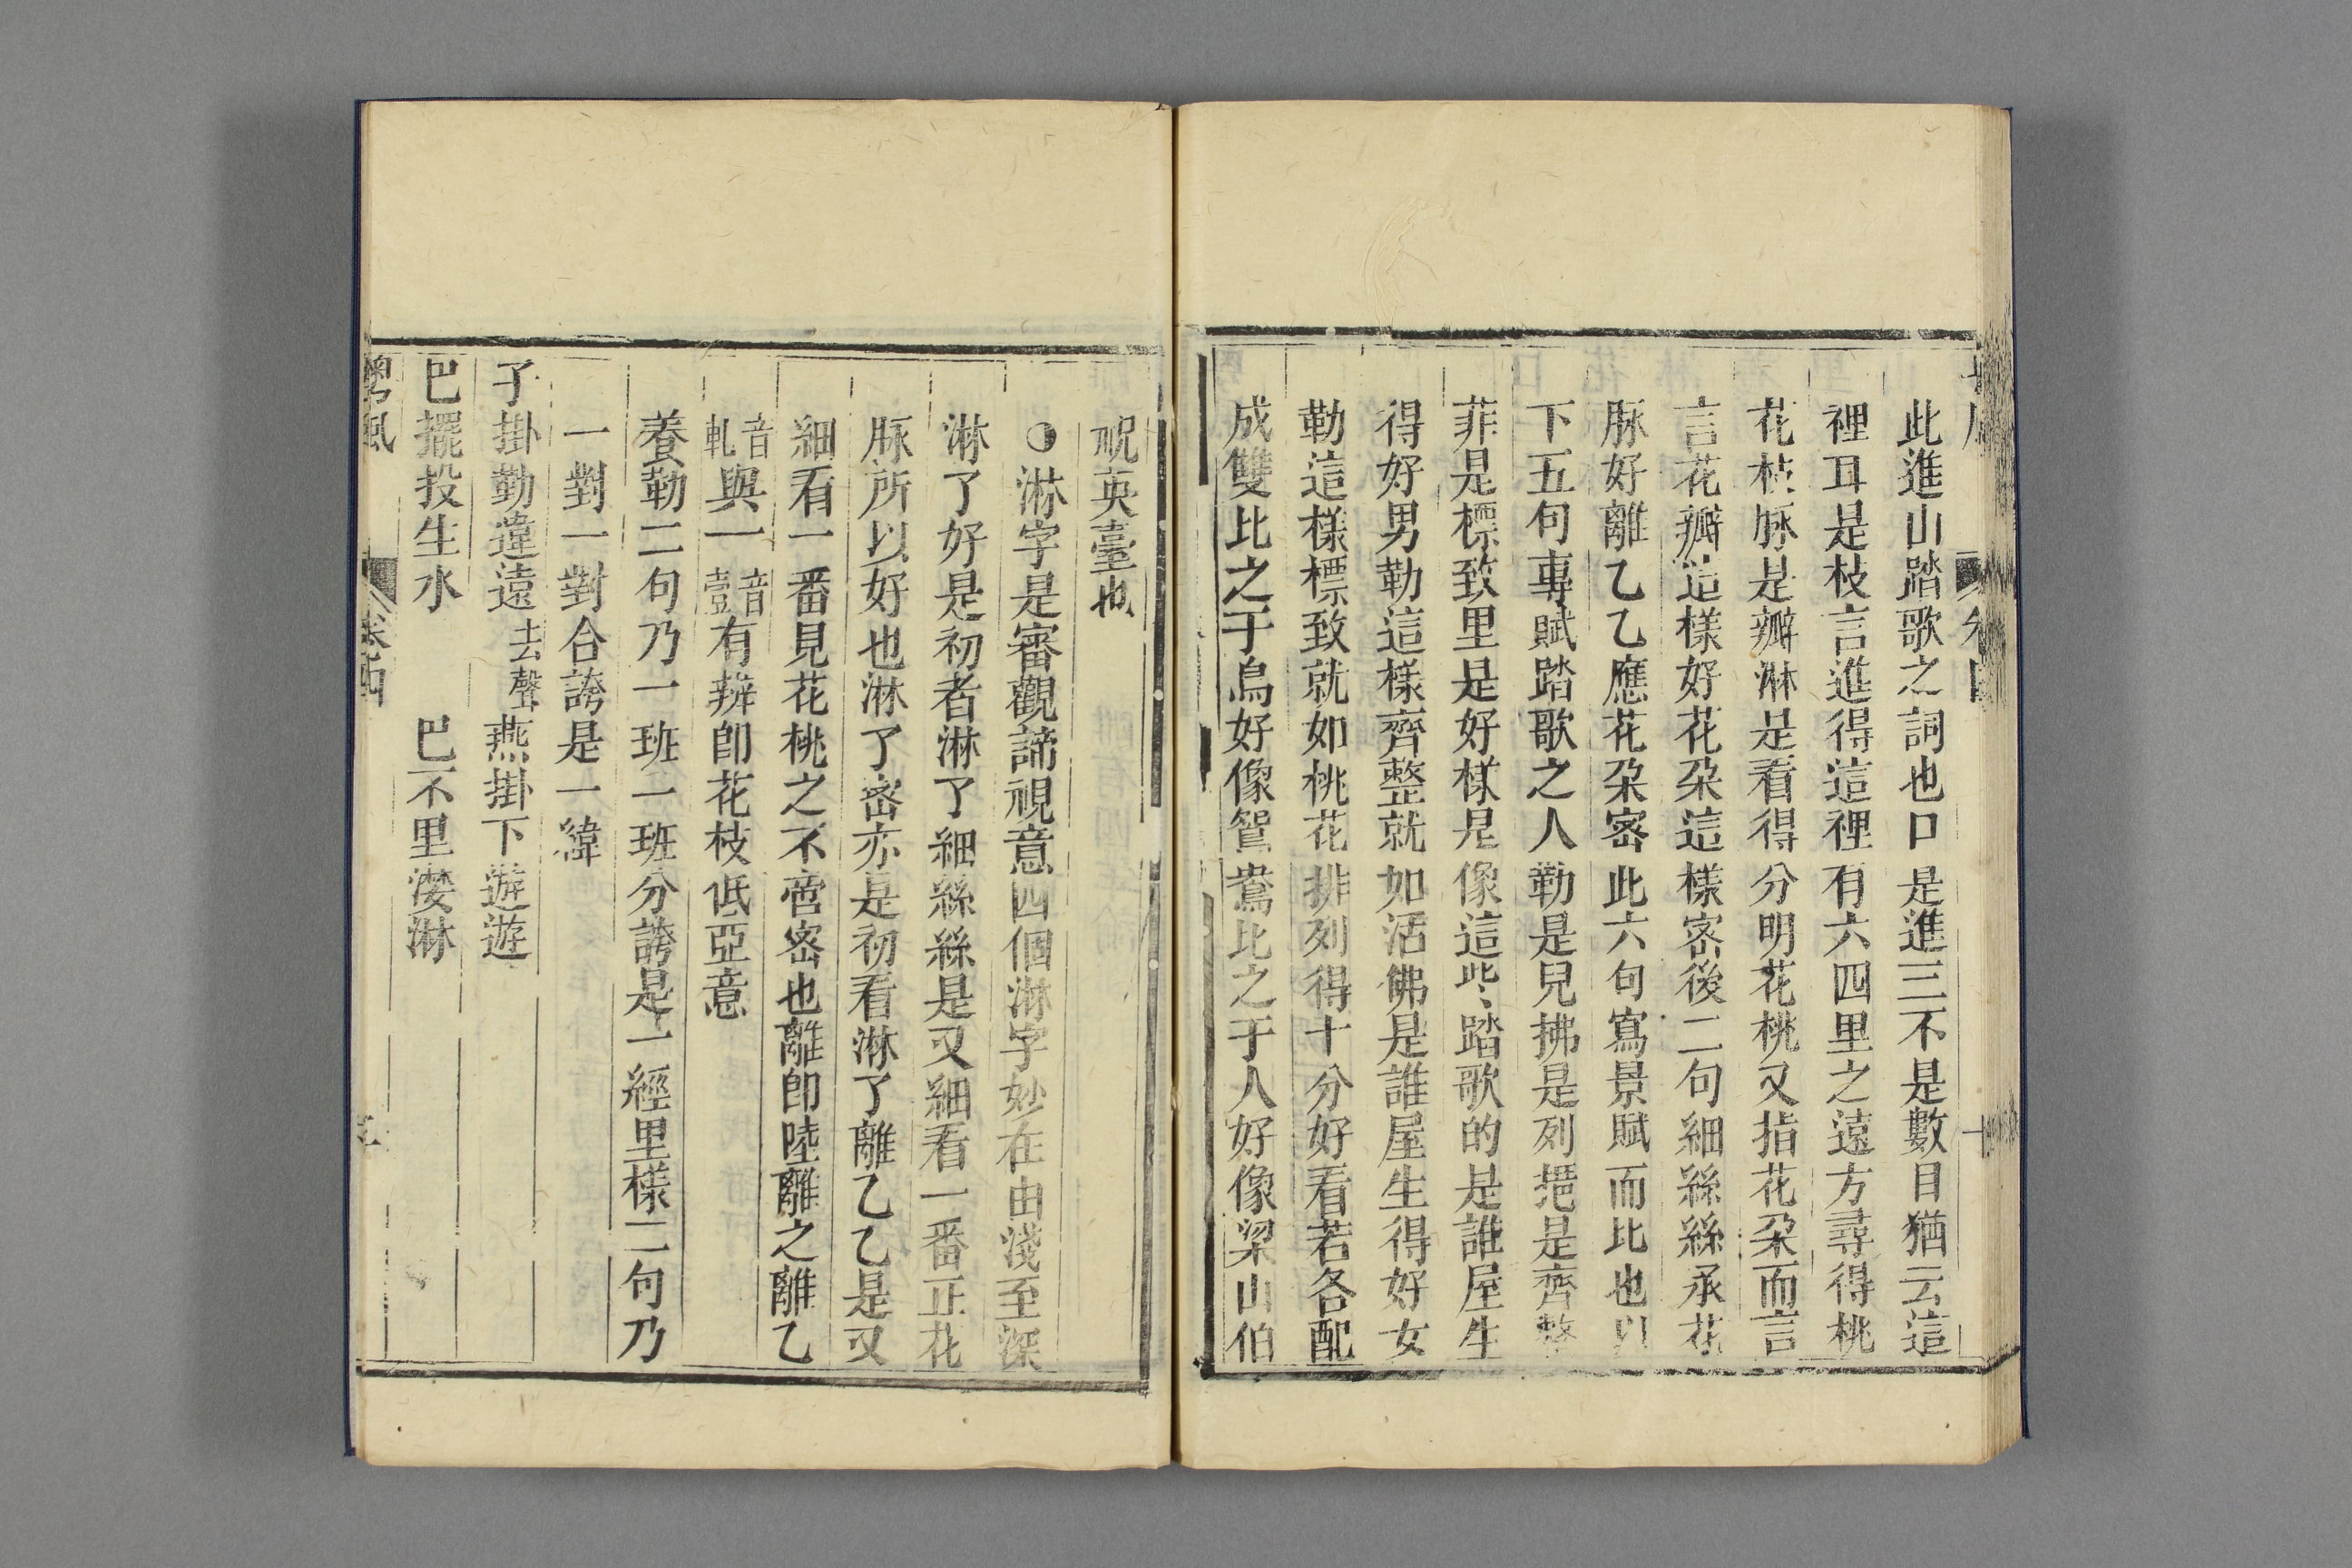 此進山踏歌之詞也口是進三不是數目猶云這
裡耳是枝言進得這裡有六四里之遠方尋得桃
花枝脉是瓣淋是看得分明花桃又指花朶而言
言花瓣這樣好花朶這樣密後二句細絲絲承花
脉好離乙乙應花朶密此六句寫景賦而比也以
下五句專賦踏歌之人勒是兒拂是列摁是齊整
菲是標致里是好樣是像這些踏歌的是誰屋生
得好男勒這樣齊整就如活佛是誰屋生得好女
勒這樣標致就如桃花排列得十分好看若各配
成雙比之于鳥好像鴛鴦比之于人好像梁山伯
祝英臺也
淋字是審觀諦視意四個淋字妙在由淺至深
淋了好是初者淋了細絲絲是又細看一番正花
脉所以好也淋了密亦是初看淋了離乙乙是又
細看一番見花桃之不啻密也離卽陸離之離乙
音軋與一音壹有辨卽花枝低亞意
養勒二句乃一班二班分誇是一經里樣二句乃
一對一對合誇是一緯
子掛勤違遠去聲燕掛下遊遊
巴擺投生水 巴不里淒淋
粤風 卷四